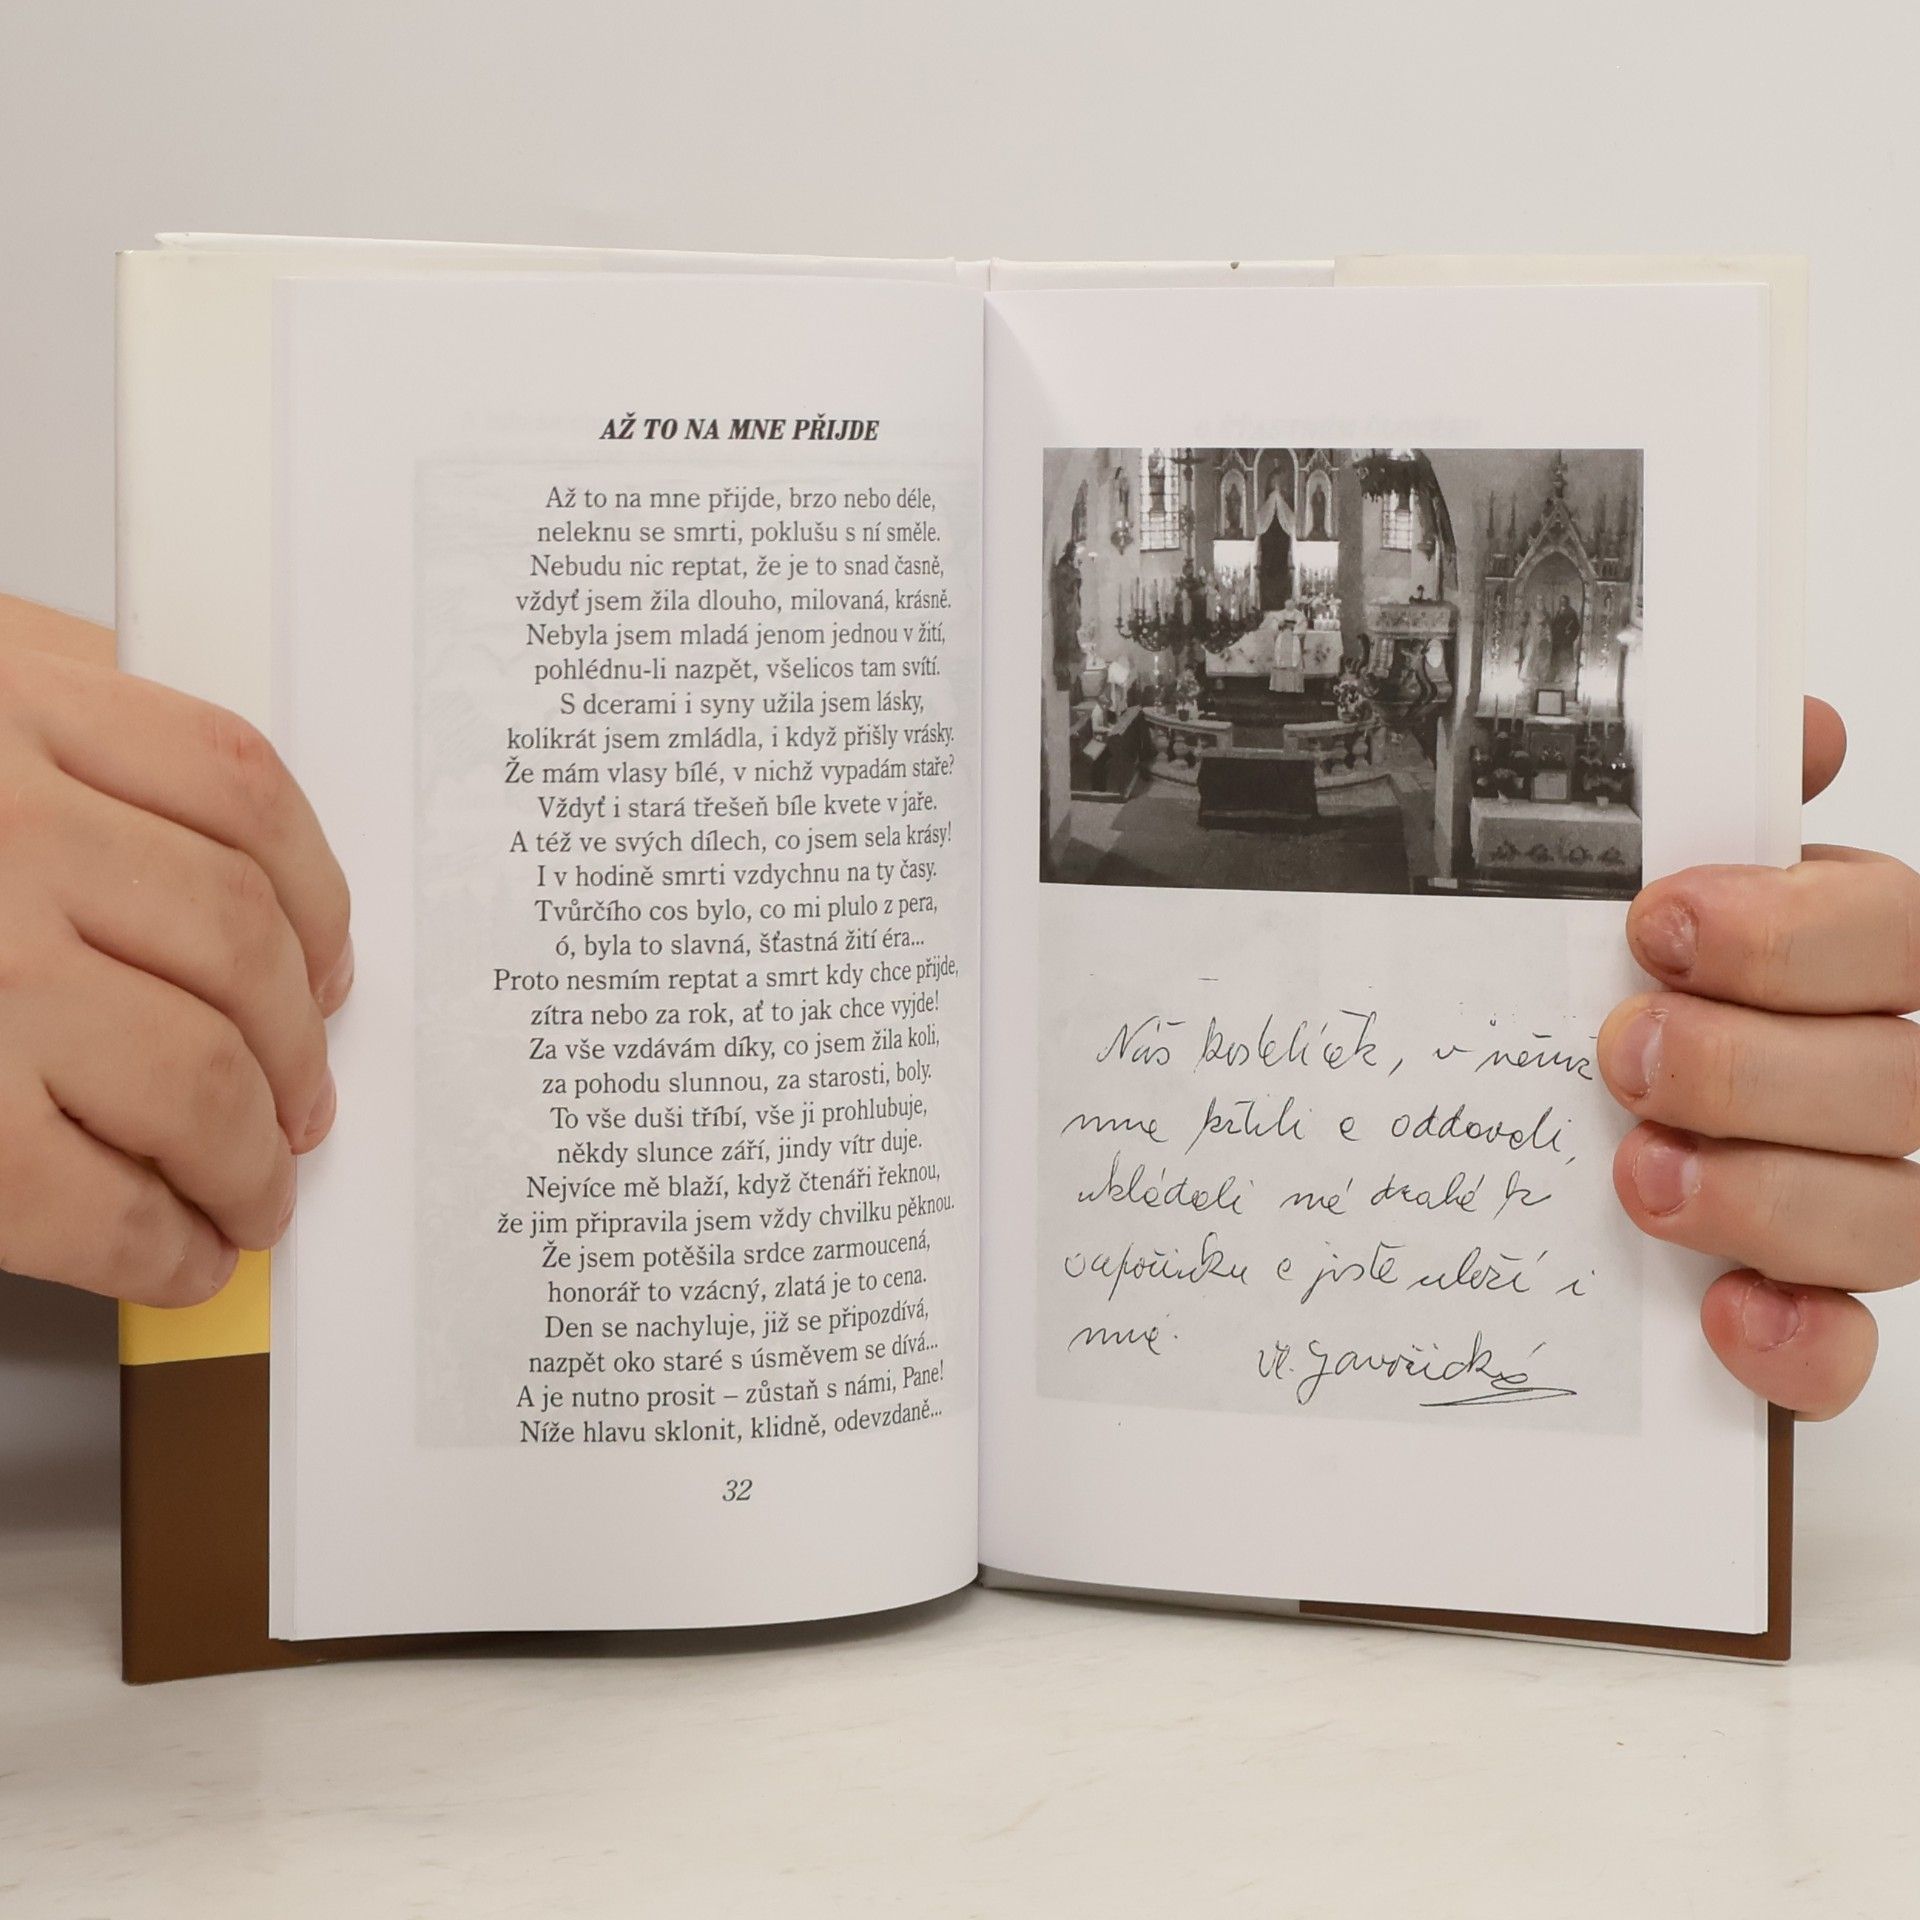 AŽ TO NA MNE PŘIJDE
Až to na mne přijde, brzo nebo déle,
neleknu se smrti, poklušu s ní směle.
Nebudu nic reptat, že je to snad časně,
vždyť jsem žila dlouho, milovaná, krásně.
Nebyla jsem mladá jenom jednou v žití,
pohlédnu-li nazpět, všelicos tam svítí.
S dcerami i syny užila jsem lásky,
kolikrát jsem zmládla, i když přišly vrásky.
Že mám vlasy bílé, v nichž vypadám staře?
Vždyť i stará třešeň bíle kvete v jaře.
A též ve svých dílech, co jsem sela krásy!
I v hodině smrti vzdychnu na ty časy.
Tvůrčího cos bylo, co mi plulo z pera,
ó, byla to slavná, šťastná žití éra...
Proto nesmím reptat a smrt kdy chce přijde,
zítra nebo za rok, ať to jak chce vyjde!
Za vše vzdávám díky, co jsem žila koli,
za pohodu slunnou, za starosti, boly.
To vše duši tříbí, vše ji prohlubuje,
někdy slunce září, jindy vítr duje.
Nejvíce mě blaží, když čtenáři řeknou,
že jim připravila jsem vždy chvilku pěknou.
Že jsem potěšila srdce zarmoucená,
honorář to vzácný, zlatá je to cena.
Den se nachyluje, již se připozdívá,
nazpět oko staré s úsměvem se dívá...
A je nutno prosit – zůstaň s námi, Pane!
Níže hlavu sklonit, klidně, odevzdaně...
32
Náš kostelíček, v němž
mne křtili a oddavali,
ukládali mé drahé k
odpočinku a jistě uloží i
mne.
Vl. Javořická